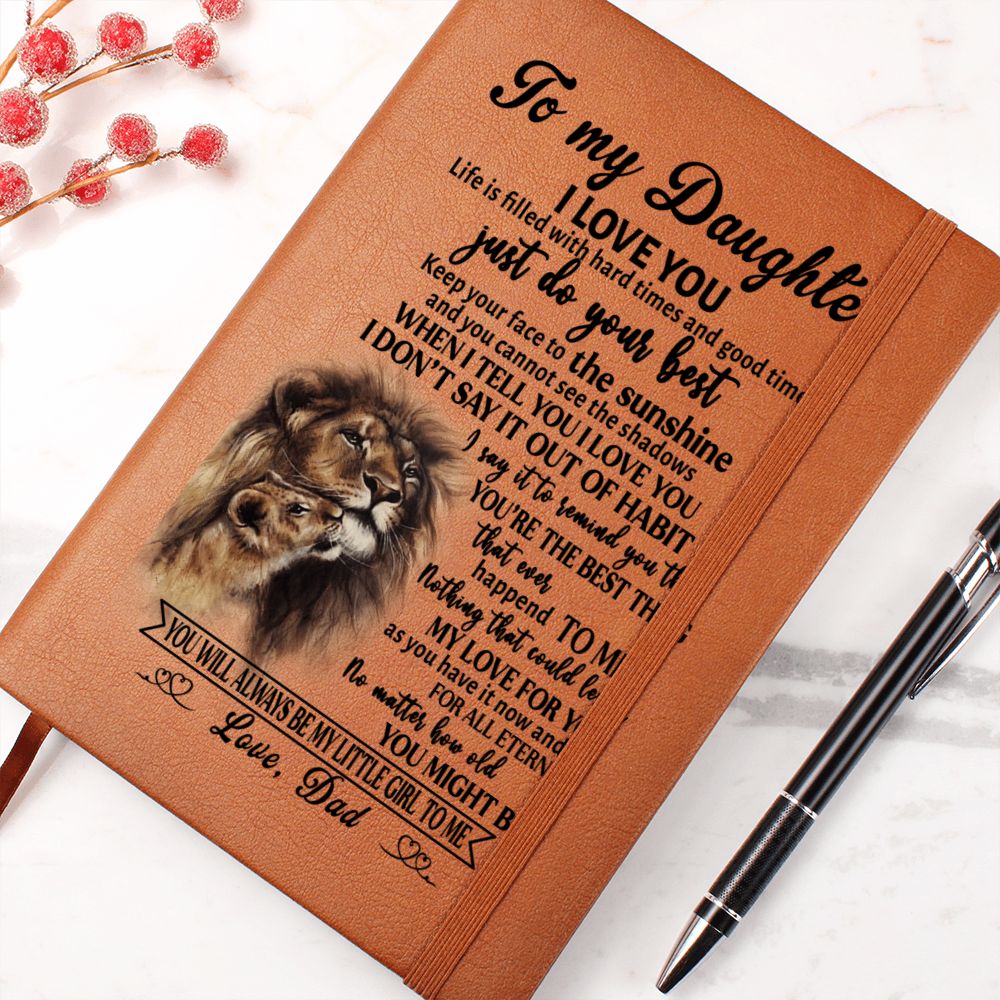 To my Daughte
I LOVE YOU
Life is filled with hard times and good time
just do your best
Keep your face to the sunshine
and you cannot see the shadows
WHEN I TELL YOU I LOVE YOU
I DON'T SAY IT OUT OF HABIT
I say it to remind you th
YOU'RE THE BEST TH G
that ever
happend TO M
Nothing that could le
MY LOVE FOR Y
as you have it now and
FOR ALL ETERN
No matter how old
YOU MIGHT B
YOU WILL ALWAYS BE MY LITTLE GIRL TO ME
Love, Dad